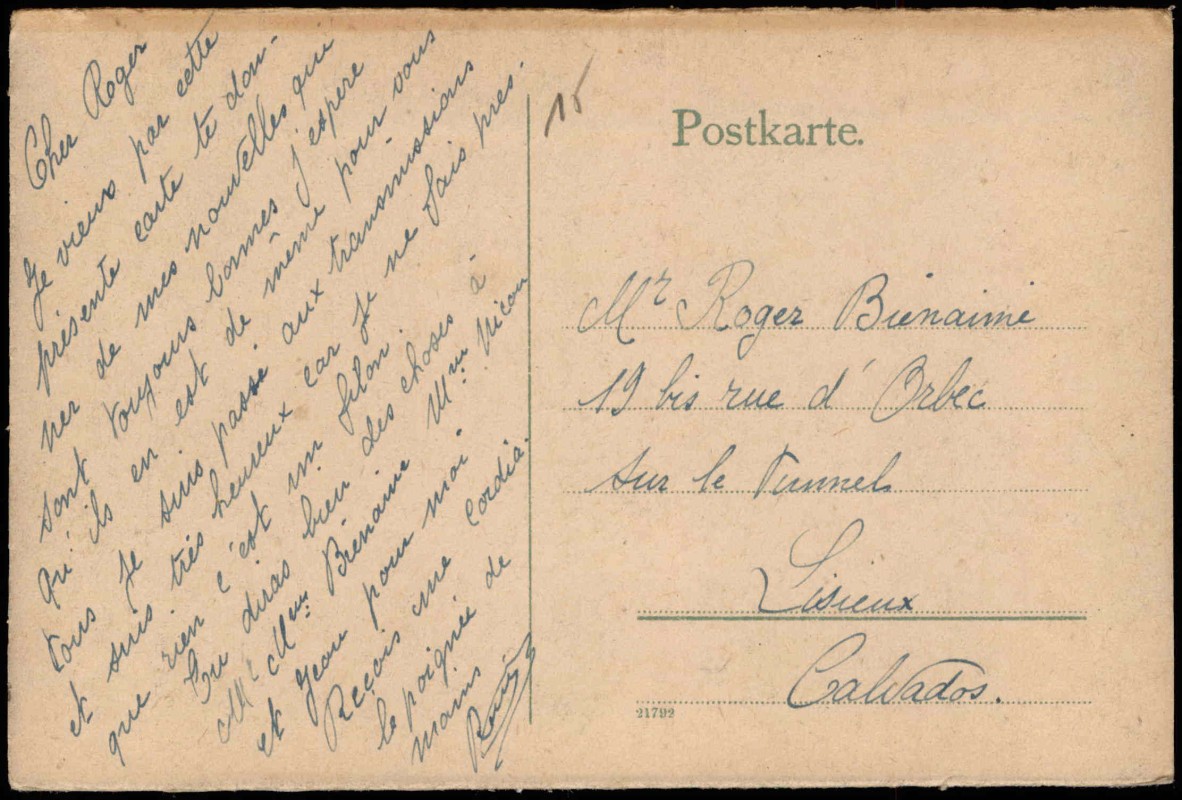 Cher Roger
Je viens par cette
présente carte te don-
ner de mes nouvelles qui
sont toujours bonnes j'espere
qu'ils en est de même pour vous
tous Je suis passé aux transmissions
et suis trés heureux car je ne fais pres-
que rien c'est un filon
Tu diras bien des choses à
Mr Mme Bienaime Mme
et Jean pour moi
Reçois une cordia-
le poignée de
mains
15
Postkarte.
Mr Roger Bienaimé
19 bis rue d'Orbec
sur le Tunnel
Lisieux
Calvados.
21792